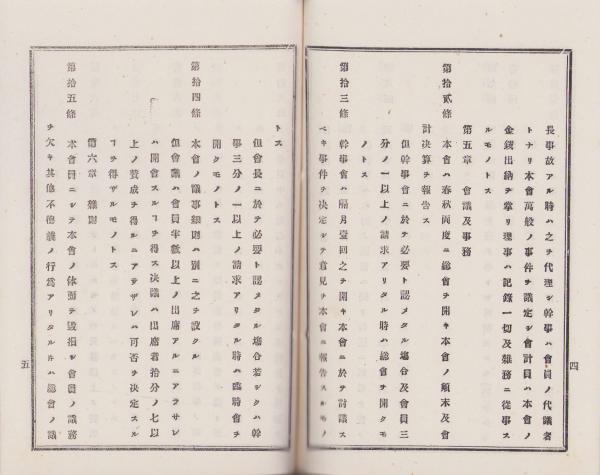 長事故アル時ハ之チ代理シ幹事ハ會員ノ代議者
トナリ本會萬般ノ事件チ議定シ會計員ハ本會ノ
金錢出納チ掌リ理事ハ記錄一切及雜務ニ從事ス
ルモノトス
第五章 會議及事務
第拾貳條 本會ハ春秋兩度ニ總會チ開キ本會ノ顚末及會
計決算チ報告ス
但幹事會ニ於テ必要ト認メタル塲合及會員三
分ノ一以上ノ請求アリタル時ハ總會チ開クモ
ノトス
第拾三條 幹事會ハ隔月壹回之チ開キ本會ニ於テ討議ス
ベキ事件チ決定シテ意見チ本會ニ報告スルモノ
四
トス
但會長ニ於テ必要ト認メタル塲合若シクハ幹
事三分ノ一以上ノ請求アリタル時ハ臨時會チ
開クモノトス
第拾四條 本會ノ議事細則ハ別ニ之チ設クル
但會議ハ會員半數以上ノ出席アルニアラサレ
ハ開會スルヿチ得ス決議ハ出席者拾分ノ七以
上ノ賛成チ得ルニアラザレハ可否チ決定スル
ヿチ得ザルモノトス
第六章 雜則
第拾五條 本會員ニシテ本會ノ体面チ毀損シ會員ノ義務
チ欠キ其他不德義ノ行爲アリタル片ハ總會ノ議
五